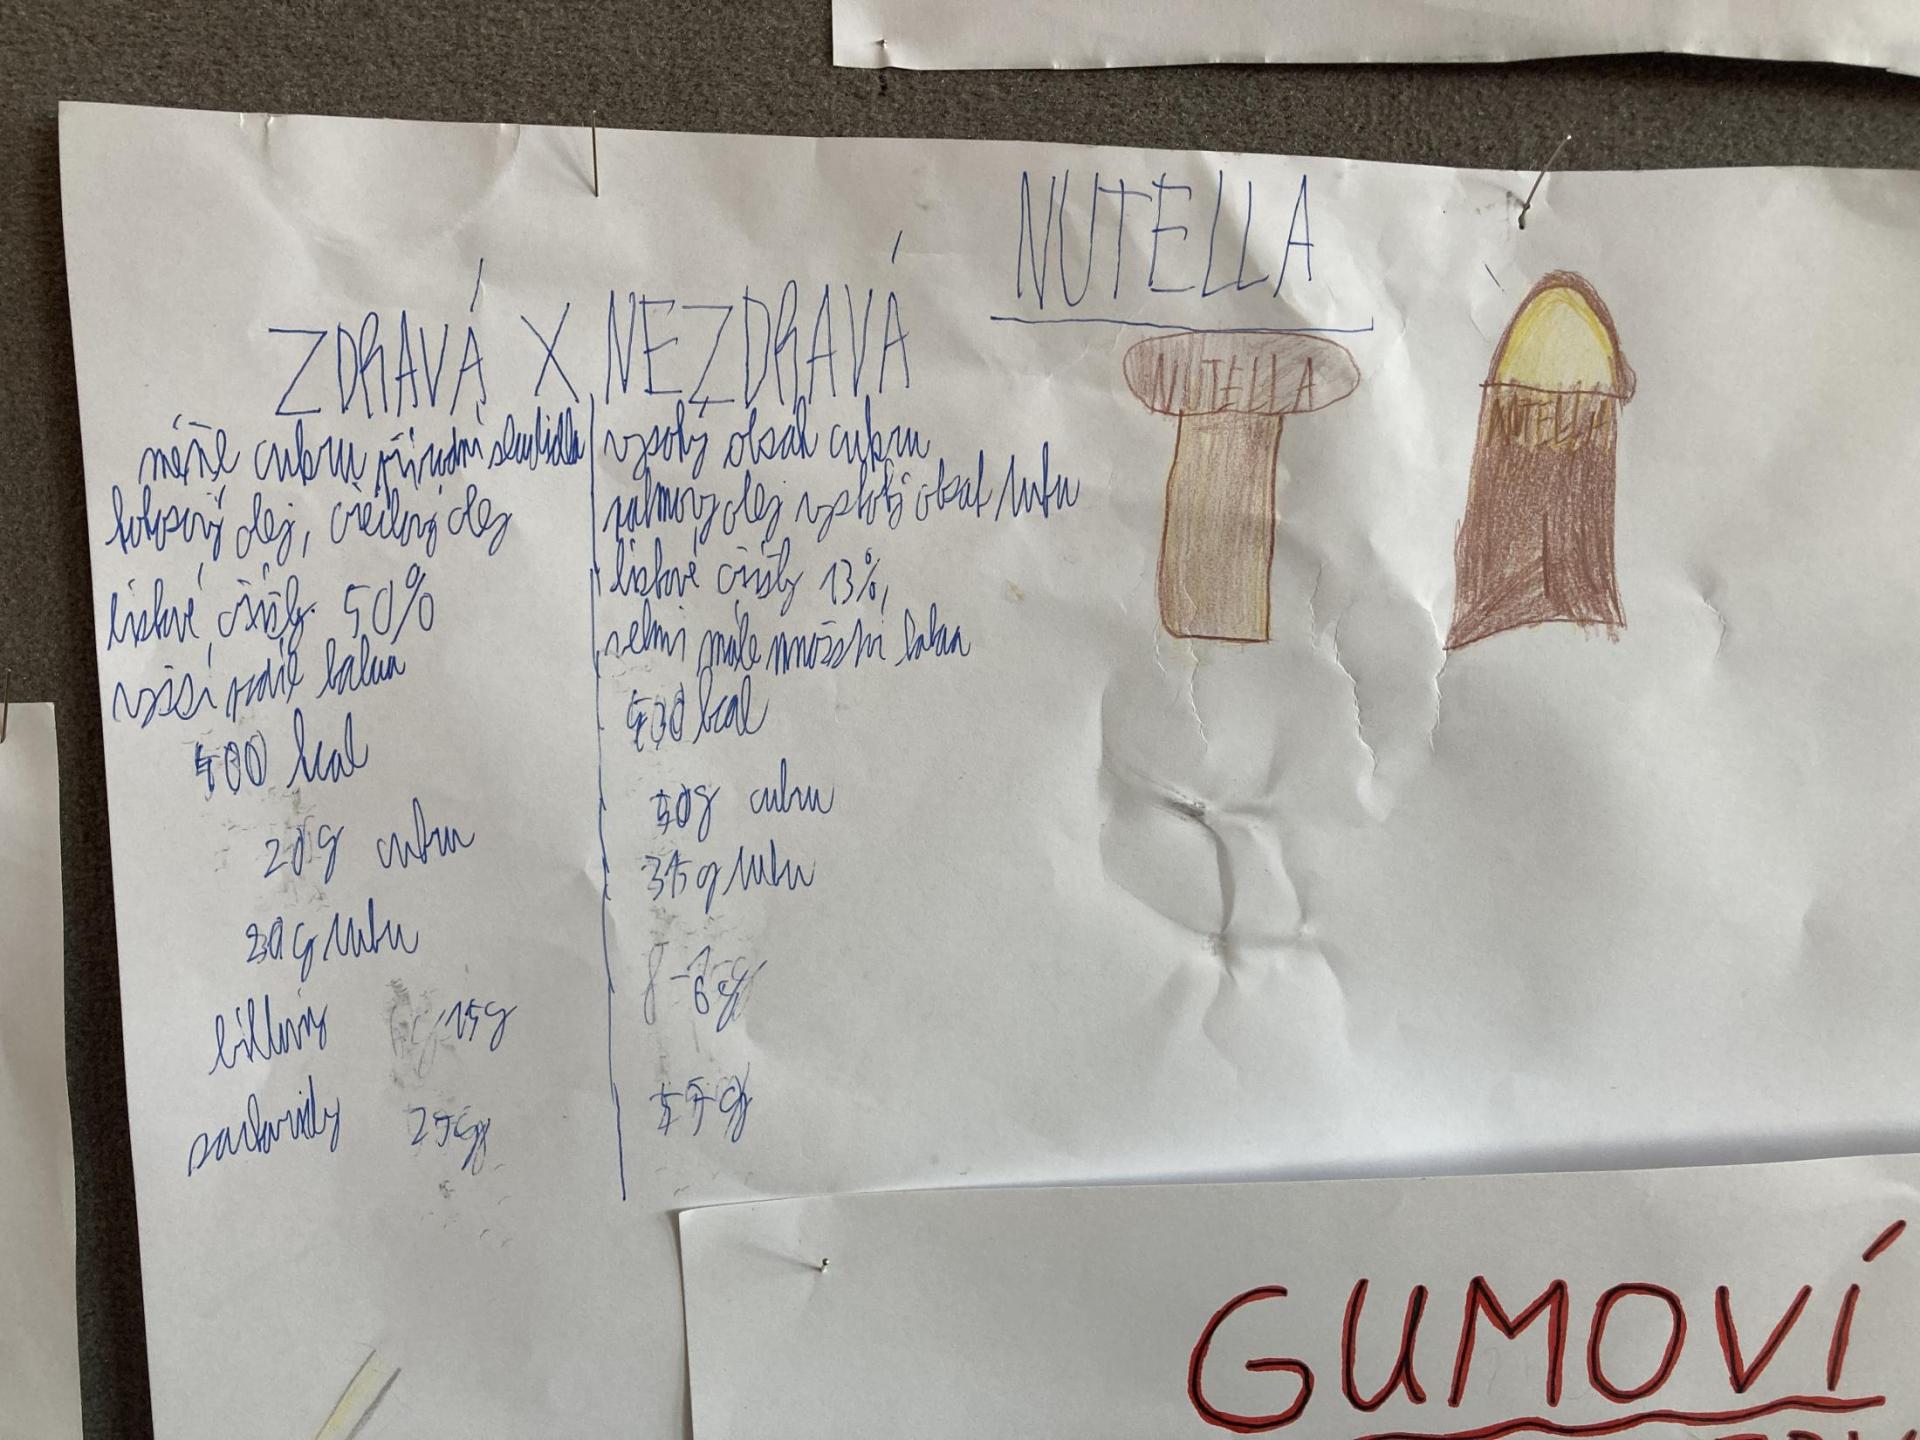 NUTELLA
ZDRAVÁ X NEZDRAVÁ
méně cukru přírodní sladidla
kokosový olej, ořechový olej
lískové oříšky 50%
vyšší podíl kakaa
400 kcal
20g cukru
30g tuku
bílkoviny 15g
sacharidy 25g
vysoký obsah cukru
palmový olej vysoký obsah tuku
lískové oříšky 13%,
velmi málé množství kakaa
530 kcal
50g cukru
35g tuku
6g
55g
NUTELLA
NUTELLA
GUMOVÍ